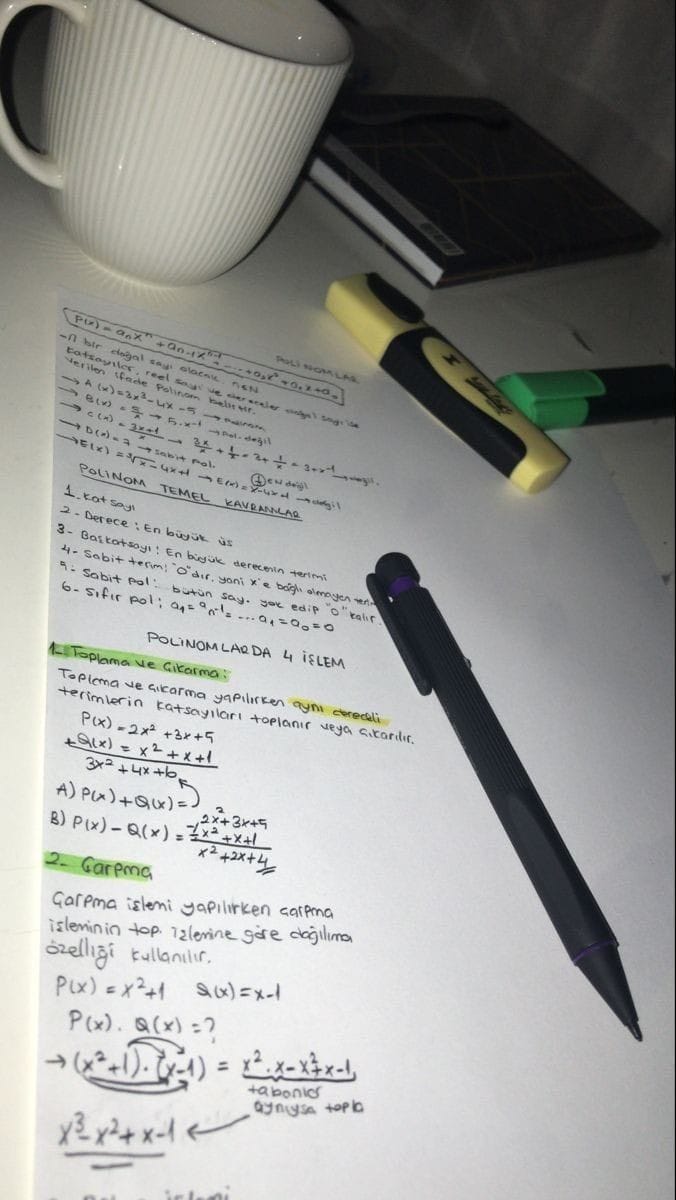 POLİNOMLAR
P(x) = aₙxⁿ + aₙ₋₁xⁿ⁻¹ + ... + a₂x² + a₁x + a₀
-n bir doğal sayı olacak n∈N
katsayılar, reel sayı ve dereceler doğal sayı ise
verilen ifade Polinom belirtir.
→ A(x) = 3x³ - 4x - 5 → Polinom
→ B(x) = 5/x → 5.x⁻¹ → Pol. değil
→ C(x) = 3x+1/x → 3x/x + 1/x = 3 + 1/x = 3+x⁻¹ → değil.
→ D(x) = 7 → sabit pol.
→ E(x) = ³√x - 4x+1 → E(x) = x - 4x+1 → değil
∈N değil
POLİNOM TEMEL KAVRAMLAR
1. Katsayı
2 - Derece : En büyük üs
3 - Başkatsayı : En büyük derecenin terimi
4 - Sabit terim : "0"dır. yani x'e bağlı olmayan
5 - Sabit pol : bütün say. yok edip "0" kalır.
6 - Sıfır pol : aₙ = aₙ₋₁ = ... a₁ = a₀ = 0
POLİNOMLARDA 4 İŞLEM
1. Toplama ve Çıkarma :
Toplama ve çıkarma yapılırken aynı dereceli
terimlerin katsayıları toplanır veya çıkarılır.
P(x) = 2x² + 3x + 5
+ Q(x) = x² + x + 1
3x² + 4x + 6
A) P(x) + Q(x) =
B) P(x) - Q(x) = 2x² + 3x + 5
x² + x + 1
x² + 2x + 4
2 - Çarpma
Çarpma işlemi yapılırken çarpma
işleminin top. işlemine göre dağılma
özelliği kullanılır.
P(x) = x² + 1 Q(x) = x - 1
P(x). Q(x) = ?
→ (x² + 1). (x - 1) = x². x - x² + x - 1
tabanlar
aynıysa topla
x³ - x² + x - 1
işlemi